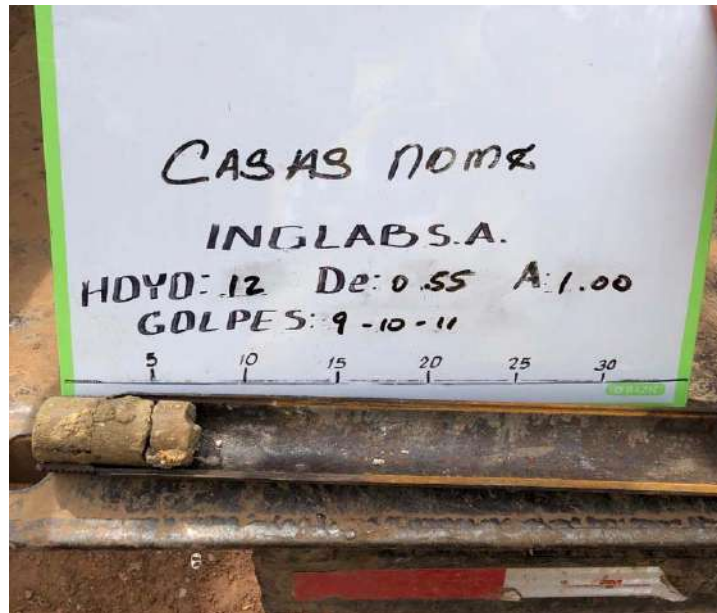 CASAS nome
INGLAB S.A.
HOYO: 12 De: 0.55 A: 1.00
GOLPES: 9-10-11
5 10 15 20 25 30